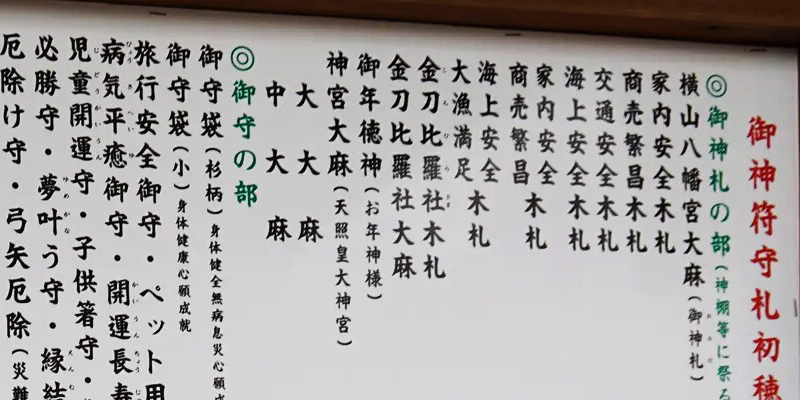 御神符守札初穂
◎御神札の部(神棚等に祭る
横山八幡宮大麻(御神札)
家内安全木札
商売繁昌木札
交通安全木札
海上安全木札
家内安全
商売繁昌
木札
海上安全
大漁満足
木札
金刀比羅社木札
金刀比羅社大麻
御年徳神(お年神様)
神宮大麻(天照皇大神宮)
大大麻
中大麻
◎御守の部
御守袋(杉柄)身体健全無病息災心願成
御守袋(小)身体健康心願成就
旅行安全御守・ペット用
病気平癒御守・開運長寿
児童開運守・子供箸守・
必勝守・夢叶う守・縁結
厄除け守・弓矢厄除(災難